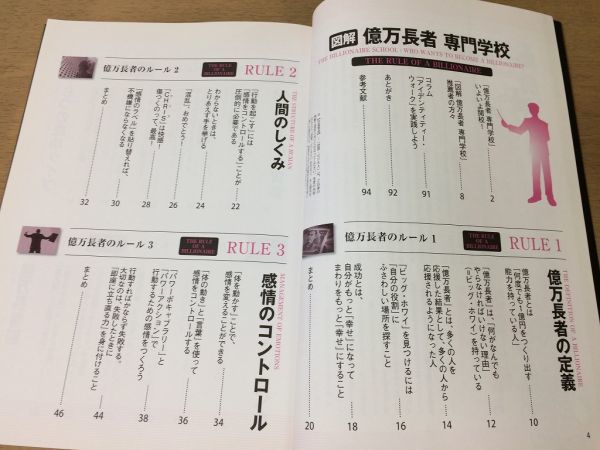 図解 億万長者 専門学校
THE BILLIONAIRE SCHOOL : WHO WANTS TO BECOME A BILLIONAIRE?
THE RULE OF A BILLIONAIRE
「億万長者 専門学校」
いよいよ開校! 2
「図解 億万長者 専門学校」
推薦者の方々 8
コラム
「アイデンティティー・
ウォーク」を実践しよう 91
あとがき 92
参考文献 94
億万長者のルール 1
THE RULE
OF A
BILLIONAIRE
RULE 1
億万長者の定義
THE DEFINITION OF A BILLIONAIRE
億万長者とは
「何度でも1億円をつくり出す
能力を持っている人」 10
「億万長者」は、「何がなんでも
やらなければいけない理由」
(=ビッグ・ホワイ)を持っている 12
「億万長者」とは、多くの人を
応援した結果として、多くの人から
応援されるようになった人 14
「ビッグ・ホワイ」を見つけるには
「自分の役割」に
ふさわしい場所を探すこと 16
成功とは、
自分がもっと「幸せ」になって
まわりをもっと「幸せ」にすること 18
まとめ 20
4
億万長者のルール 2
THE RULE
OF A
BILLIONAIRE
RULE 2
人間のしくみ
「行動を起こす」には
「感情をコントロールする」ことが
圧倒的に必要である 22
わからないときは、
とりあえず手を挙げる 24
「混乱」、おめでとう! 26
傷つくのって、最高! 28
「感情のラベル」を貼り替えれば、
不機嫌にならなくなる 30
まとめ 32
億万長者のルール 3
THE RULE
OF A
BILLIONAIRE
RULE 3
感情のコントロール
MANAGEMENT OF EMOTIONS
「体を動かす」ことで、
感情を変えることができる 34
「体の動き」と「言葉」を使って
感情をコントロールする 36
「パワーボキャブラリー」と
「パワーアクション」で
行動するための感情をつくろう 38
行動すればかならず失敗する。
大切なのは、失敗したときに
「即座に立ち直る力」を身に付けること 44
まとめ 46